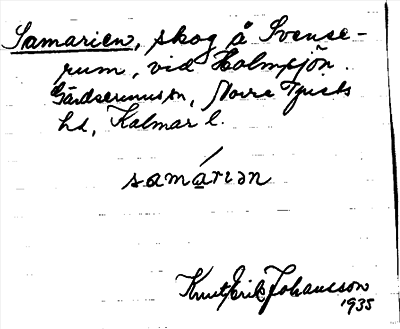 Samarien, skog å Svense-
rum, vid Holmsjön.
Gärdserums sn, Norra Tjusts
hd, Kalmar l.
samárian
Knut Erik Johansson
1935